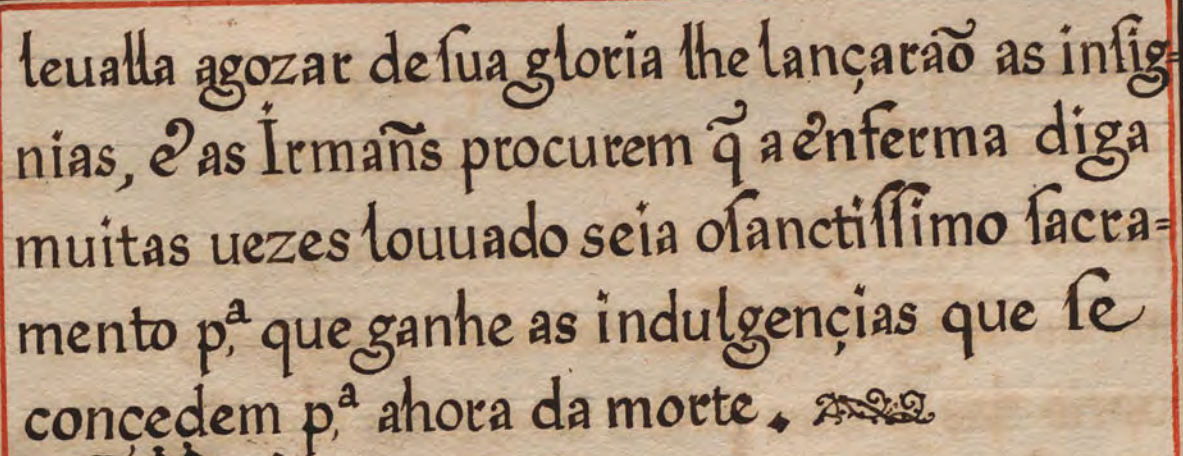 leualla agozar deſua gloria lhe lançaraõ as inſig=
nias, e as Irmañs procurem q̃ a enferma diga
muitas uezes louuado seia oſanctiſſimo ſacra=
mento p.ª que ganhe as indulgençias que ſe
conçedem p.ª ahora da morte.